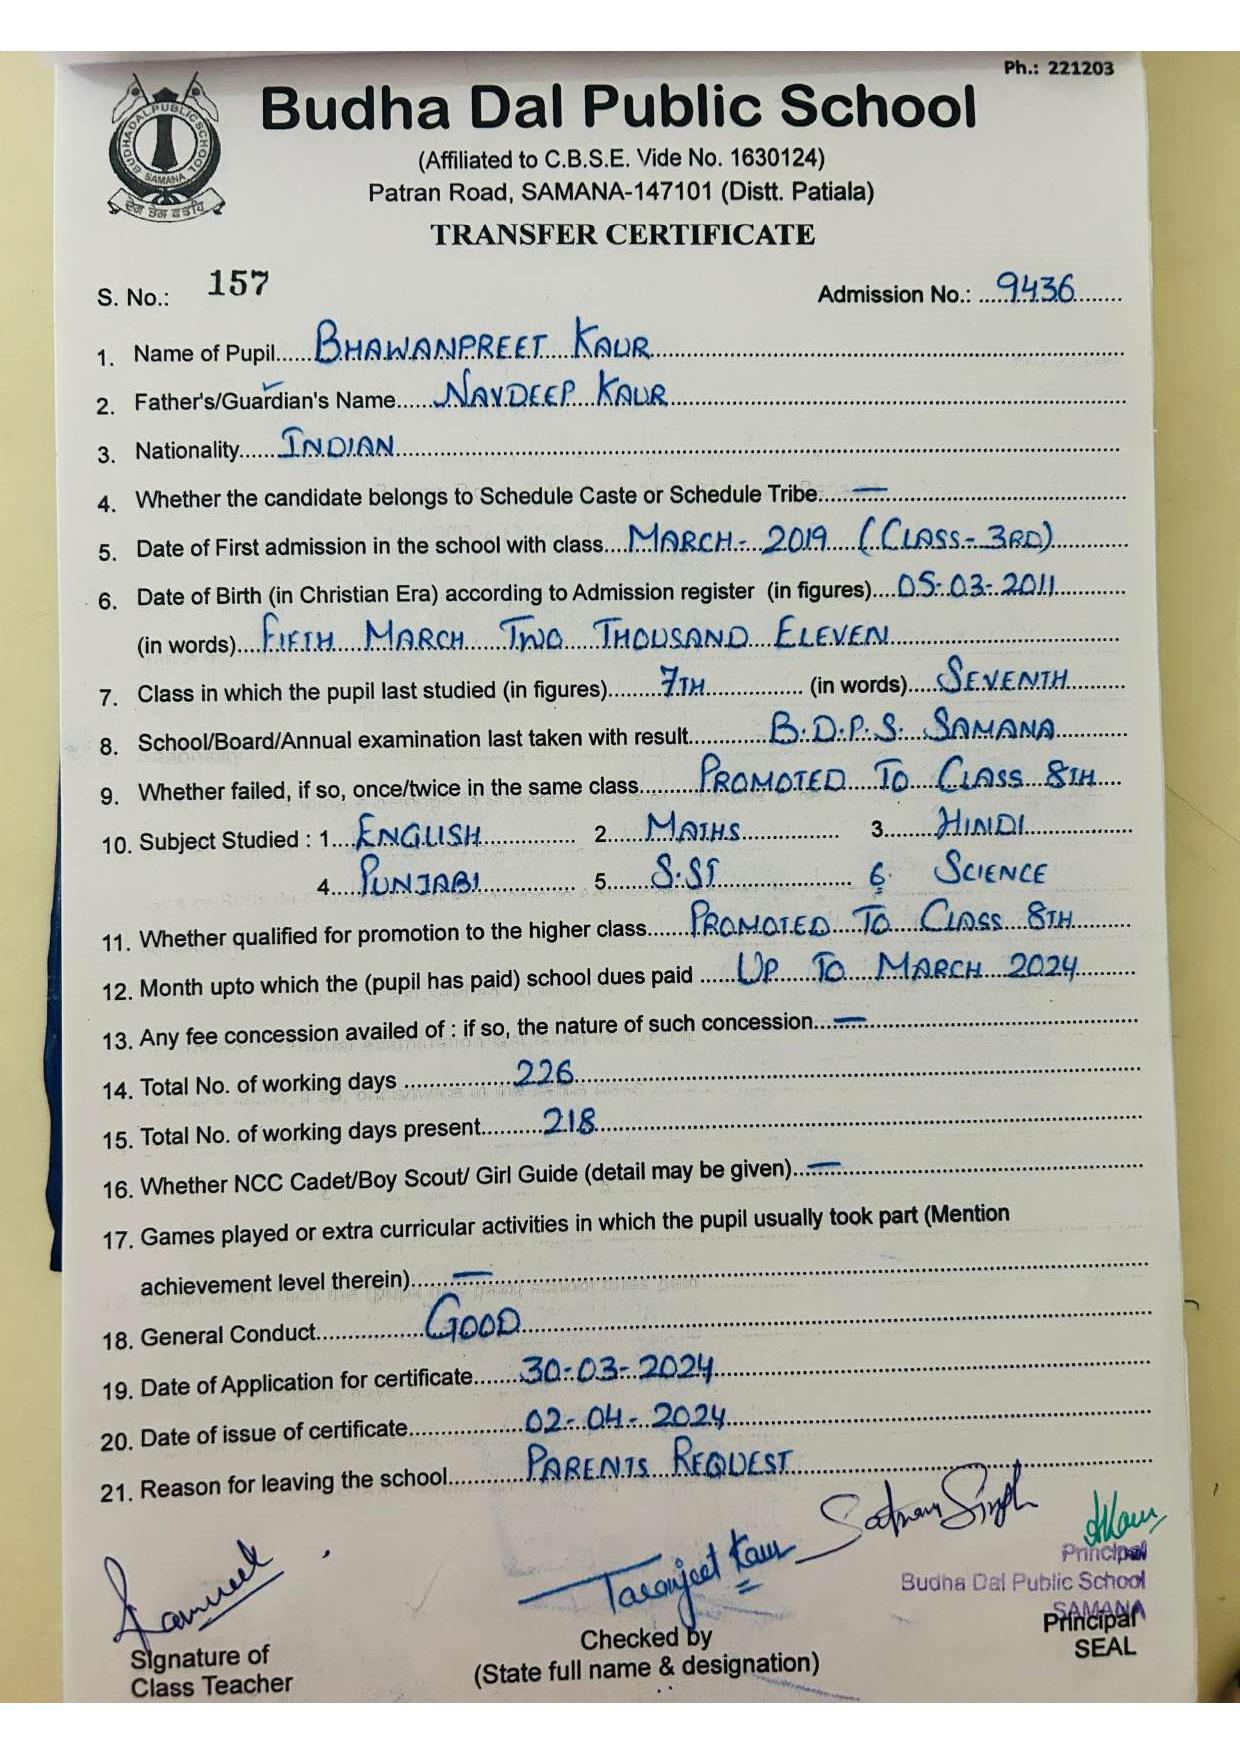 Ph.: 221203
BUDHA DAL PUBLIC SCHOOL
SAMANA
ਦੇਗ ਤੇਗ ਫਤਹਿ
Budha Dal Public School
(Affiliated to C.B.S.E. Vide No. 1630124)
Patran Road, SAMANA-147101 (Distt. Patiala)
TRANSFER CERTIFICATE
S. No.: 157 Admission No.: 9436
1. Name of Pupil BHAWANPREET KAUR
2. Father's/Guardian's Name NAVDEEP KAUR
3. Nationality INDIAN
4. Whether the candidate belongs to Schedule Caste or Schedule Tribe —
5. Date of First admission in the school with class MARCH- 2019 (CLASS-3RD)
6. Date of Birth (in Christian Era) according to Admission register (in figures) 05-03-2011
(in words) FIFTH MARCH TWO THOUSAND ELEVEN
7. Class in which the pupil last studied (in figures) 7TH (in words) SEVENTH
8. School/Board/Annual examination last taken with result B.D.P.S. SAMANA
9. Whether failed, if so, once/twice in the same class PROMOTED TO CLASS 8TH
10. Subject Studied : 1. ENGLISH 2. MATHS 3. HINDI
4. PUNJABI 5. S.ST 6. SCIENCE
11. Whether qualified for promotion to the higher class PROMOTED TO CLASS 8TH
12. Month upto which the (pupil has paid) school dues paid UP TO MARCH 2024
13. Any fee concession availed of : if so, the nature of such concession —
14. Total No. of working days 226
15. Total No. of working days present 218
16. Whether NCC Cadet/Boy Scout/ Girl Guide (detail may be given) —
17. Games played or extra curricular activities in which the pupil usually took part (Mention
achievement level therein) —
18. General Conduct GOOD
19. Date of Application for certificate 30-03-2024
20. Date of issue of certificate 02-04-2024
21. Reason for leaving the school PARENTS REQUEST
Taranjeet Kaur Satnam Singh
Principal
Budha Dal Public School
SAMANA
Signature of
Class Teacher
Checked by
(State full name & designation)
Principal
SEAL